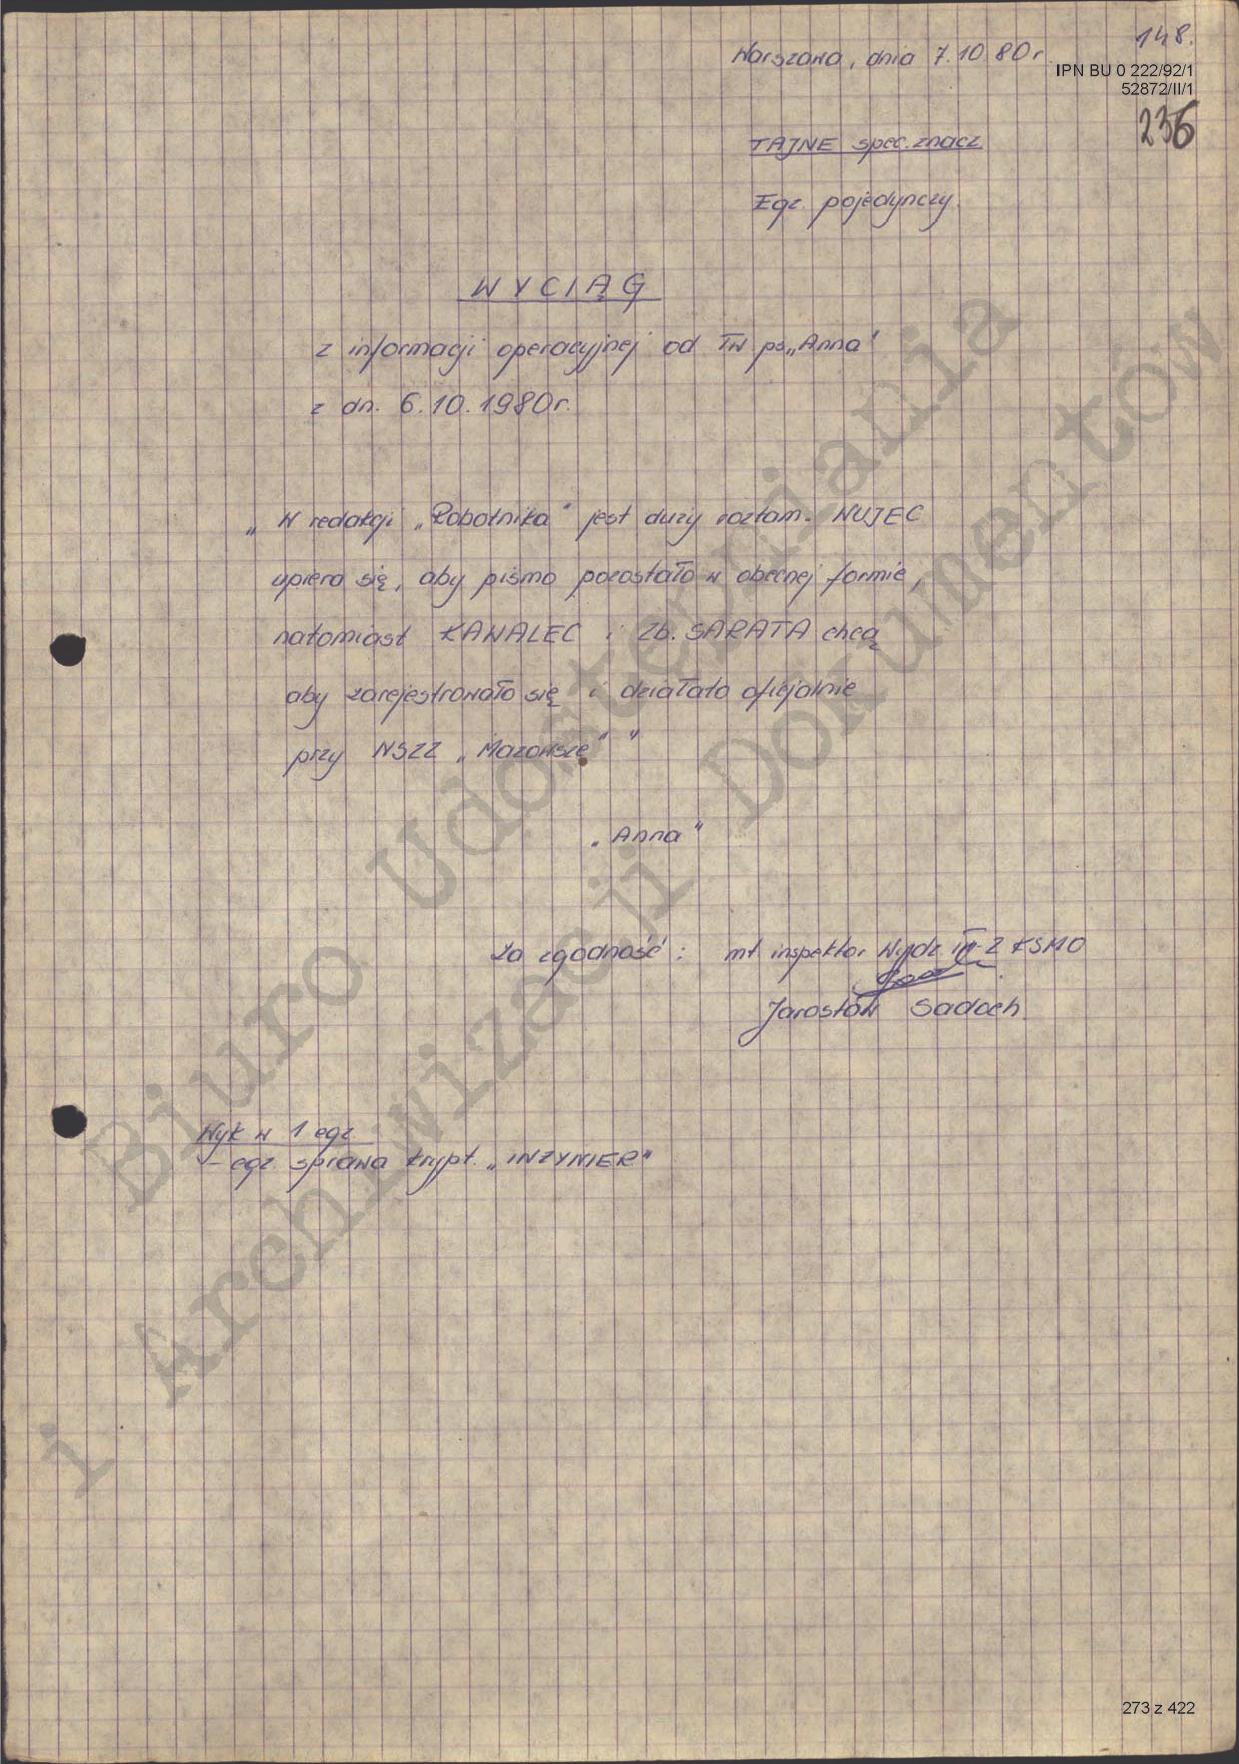 148.
Warszawa, dnia 7.10.80r.
IPN BU 0 222/92/1
52872/II/1
236
TAJNE spec.znacz.
Egz. pojedynczy.
WYCIĄG
z informacji operacyjnej od TW ps„Anna"
z dn. 6.10.1980r.
„W redakcji „Robotnika" jest duży rozłam. WUJEC
upiera się, aby pismo pozostało w obecnej formie,
natomiast KAWALEC i Zb. SARATA chcą
aby zarejestrowało się i działało oficjalnie
przy NSZZ „Mazowsze" "
„Anna"
Za zgodność: mł inspektor Wydz. III-2 KSMO
Jarosław Sadoch.
Wyk w 1 egz
- egz. sprawa krypt. „INŻYNIER"
Biuro Udostępniania
i Archiwizacji Dokumentów
273 z 422